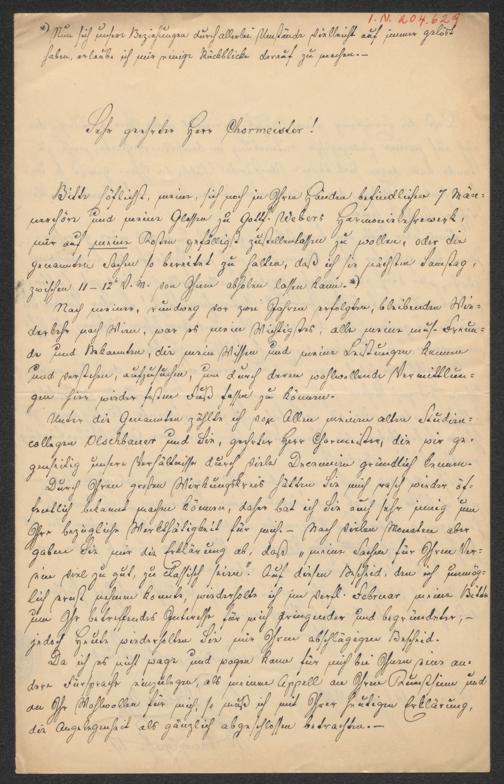 I.N. 204.629
*) Nun sich unsere Beziehungen durch allerlei Umstände vielleicht auf immer gelöst
haben, erlaube ich mir einige Rückblicke darauf zu machen. —
Sehr geehrter Herr Chormeister!
Bitte höflichst, meine, sich noch in Ihren Händen befindlichen 7 Män-
nerchöre und meine Glossen zu Gottf. Webers Harmonielehrewerk,
mir auf meine Kosten gefälligst zustellen lassen zu wollen, oder die
genannten Sachen so bereitet zu halten, daß ich sie nächsten Samstag,
zwischen 11–12 V.M. von Ihnen abholen lassen kann. *)
Nach meiner, rundweg vor zwei Jahren erfolgten, bleibenden Wie-
derkehr nach Wien, war es mein Wichtigstes, alle meine mus. Freun-
de und Bekannten, die mein Wissen und meine Leistungen kennen
und verstehen, aufzusuchen, um durch deren wohlwollende Vermittlun-
gen hier wieder festen Fuß fassen zu können.
Unter die Genannten zählte ich vor Allen meinen alten Studien-
collegen Olschbauer und Sie, geehrter Herr Chormeister, die wir ge-
genseitig unsere Verhältnisse durch viele Decennien gründlich kennen.
Durch Ihren großen Wirkungskreis hätten Sie mich rasch wieder öf-
fentlich bekannt machen können, daher bat ich Sie auch sehr innig um
Ihre bezügliche Werkthätigkeit für mich. — Nach vielen Monaten aber
gaben Sie mir die Erklärung ab, daß „meine Sachen für Ihren Ver-
ein viel zu gut, zu classisch seien". Auf diesen Bescheid, den ich unmög-
lich ernst nehmen konnte, wiederholte ich im verfl. Februar meine Bitte
um Ihr betreffendes Interesse für mich dringender und begründeter, –
jedoch heute wiederholten Sie mir Ihren abschlägigen Bescheid.
Da ich es nicht wage und wagen kann für mich bei Ihnen eine an-
dere Fürsprache einzulegen, als meinen Appell an Ihren Kunstsinn und
an Ihr Wohlwollen für mich, so muß ich mit Ihrer heutigen Erklärung,
die Angelegenheit als gänzlich abgeschlossen betrachten. —